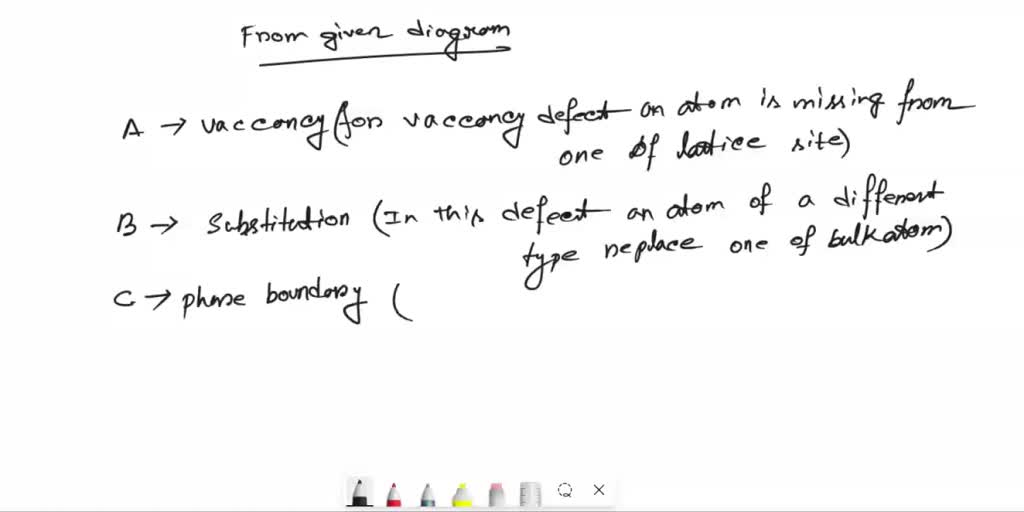 From given diagram
A → vaccency (for vaccency defect an atom is missing from
one of lattice site)
B → Substitution (In this defect an atom of a different
type replace one of bulk atom)
C → phase boundary (